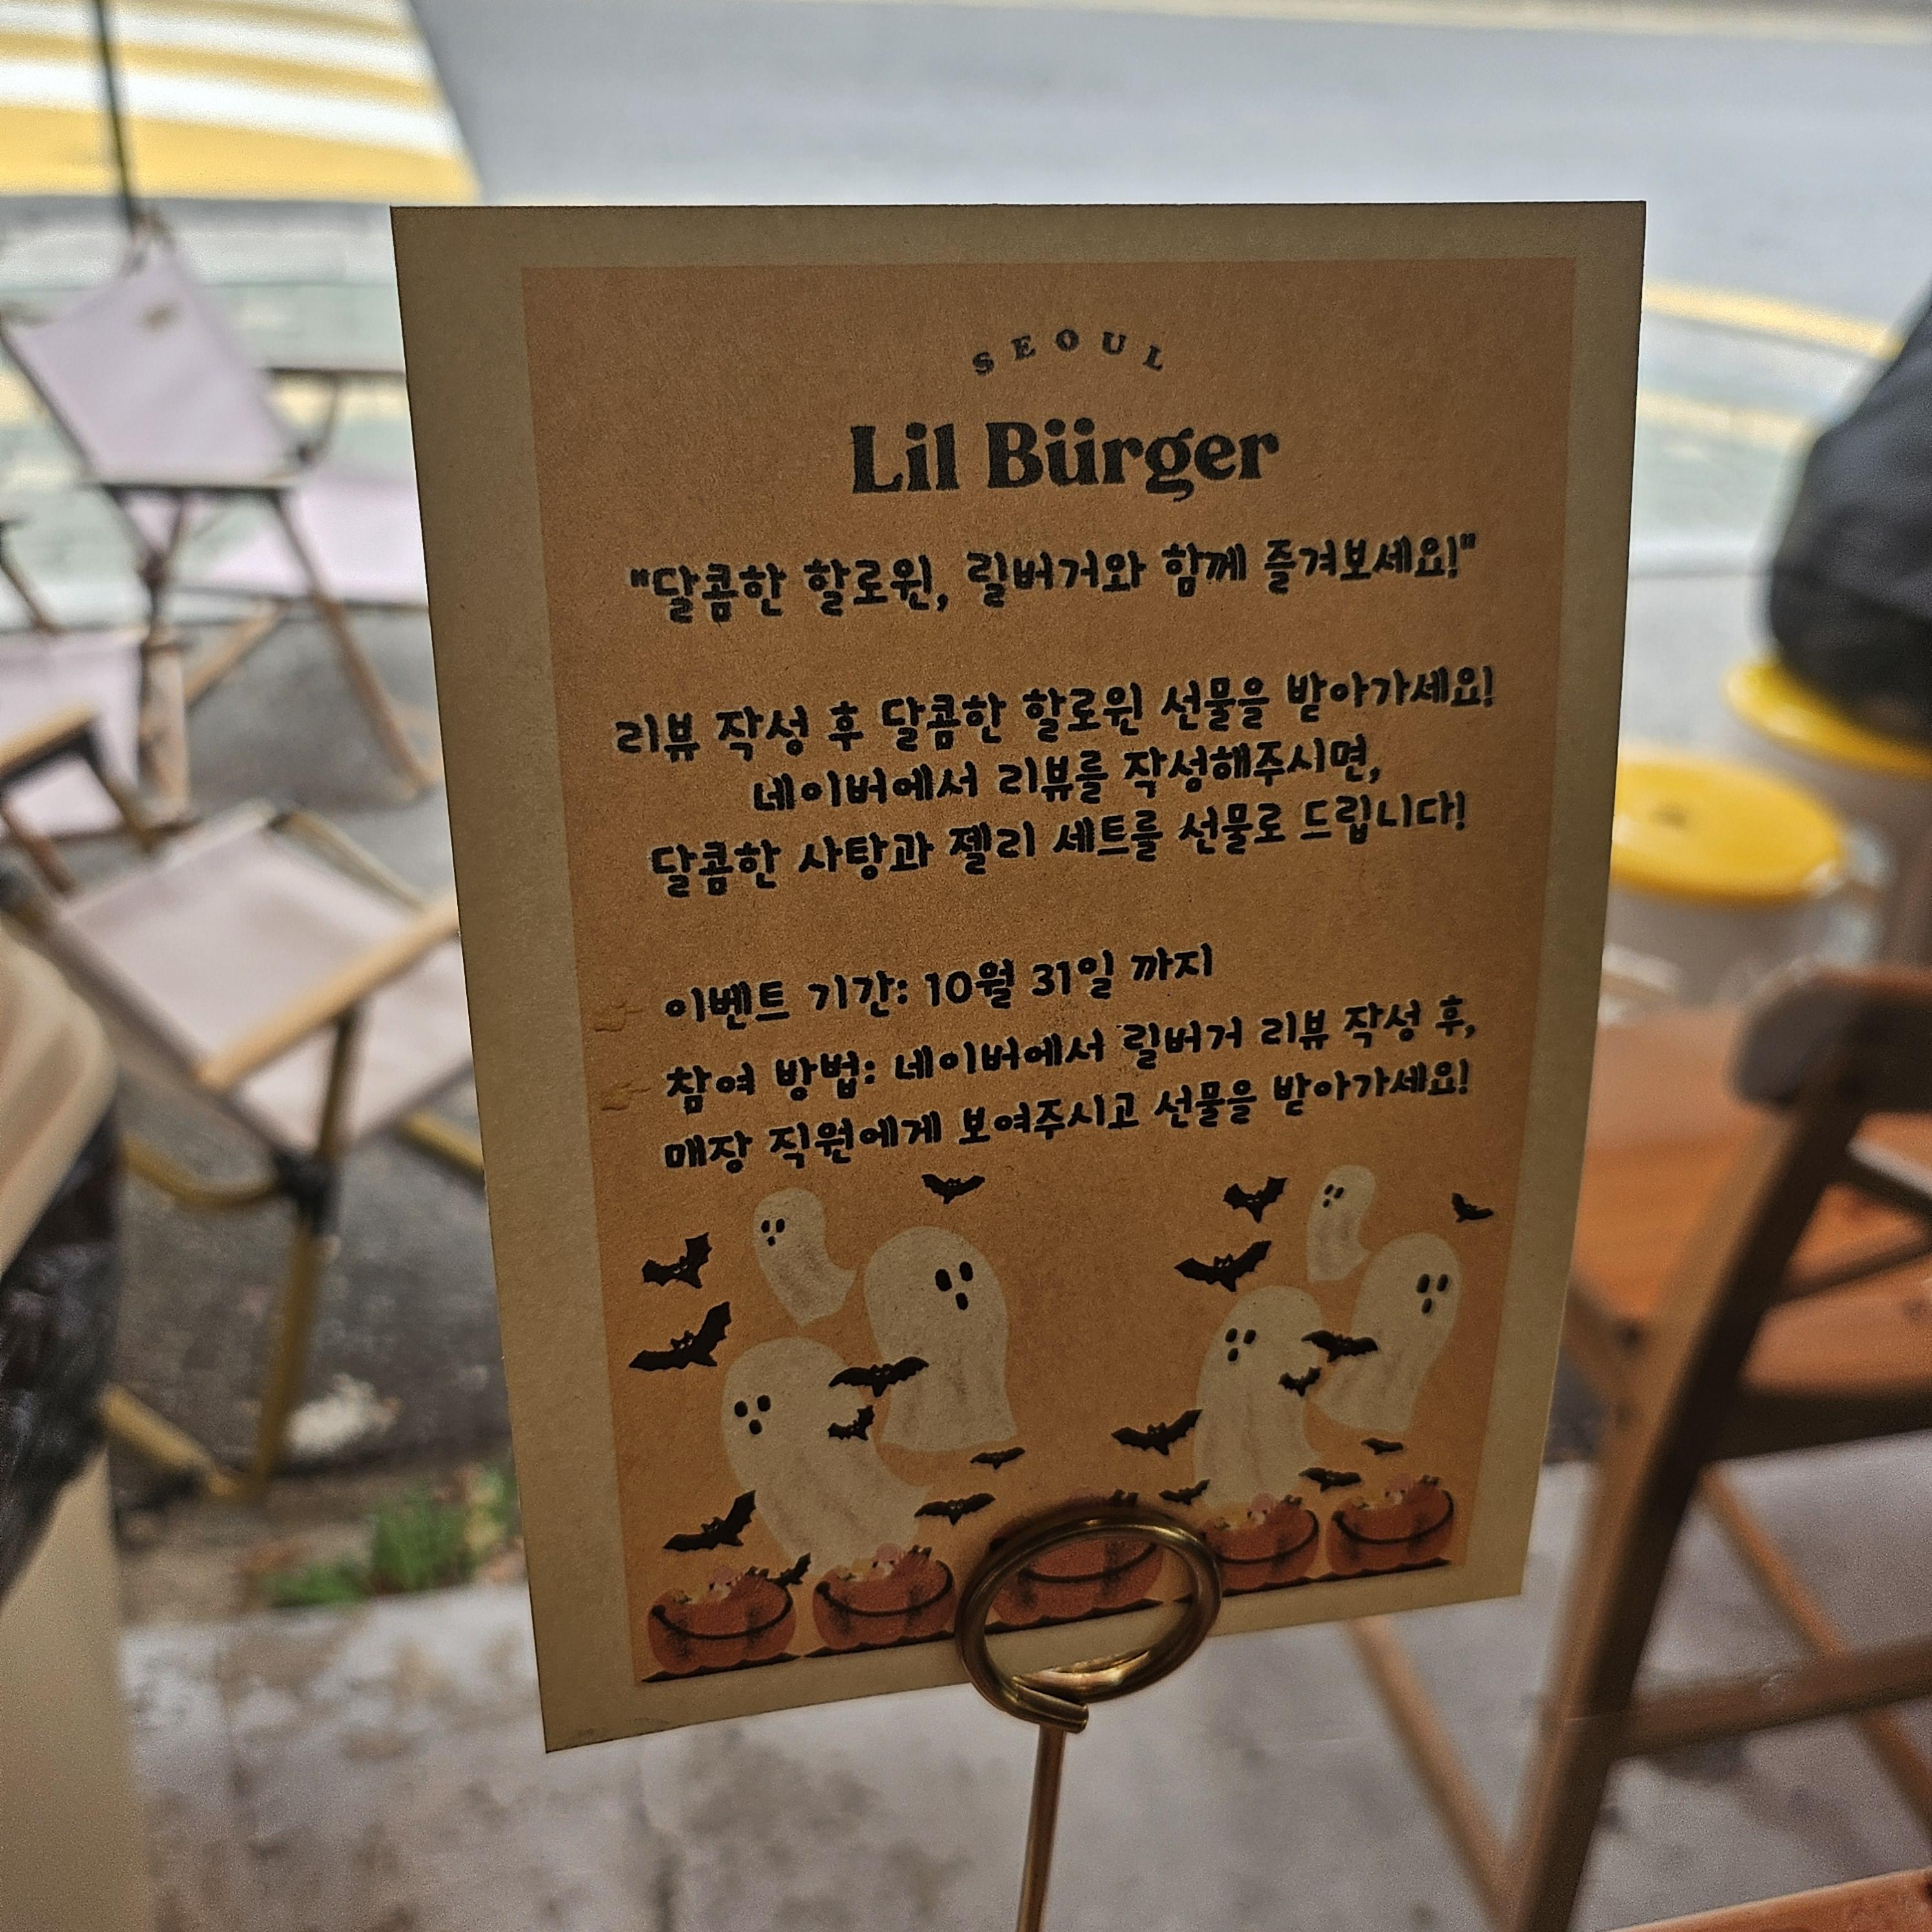 SEOUL
Lil Bürger
"달콤한 할로윈, 릴버거와 함께 즐겨보세요!"
리뷰 작성 후 달콤한 할로윈 선물을 받아가세요!
네이버에서 리뷰를 작성해주시면,
달콤한 사탕과 젤리 세트를 선물로 드립니다!
이벤트 기간: 10월 31일 까지
참여 방법: 네이버에서 릴버거 리뷰 작성 후,
매장 직원에게 보여주시고 선물을 받아가세요!